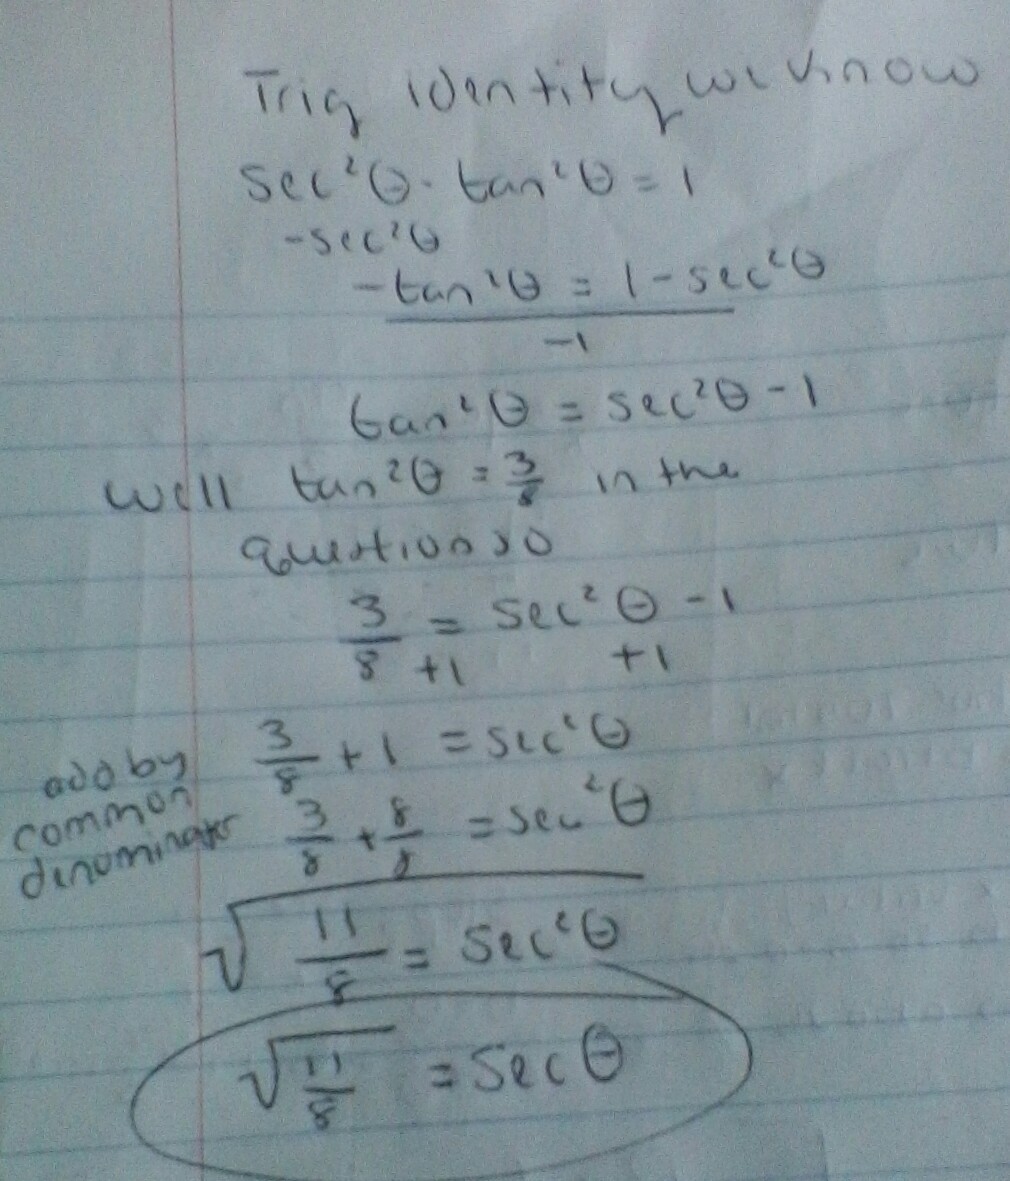 Trig identity we know
sec²θ - tan²θ = 1
-sec²θ
-tan²θ = 1 - sec²θ
-1
tan²θ = sec²θ - 1
well tan²θ = 3/8 in the
question so
3/8 = sec²θ - 1
+1 +1
3/8 + 1 = sec²θ
add by
common
denominator
3/8 + 8/8 = sec²θ
√ 11/8 = sec²θ
√11/8 = sec θ